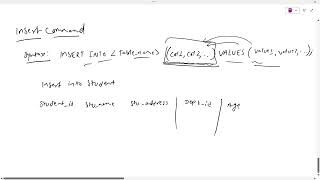 Insert Command
Syntax: INSERT INTO < Table_name > (col1, col2, ...) VALUES (value1, value2, ...)
Insert into Student
Student_id Stu_name Stu_address Dept_id Age